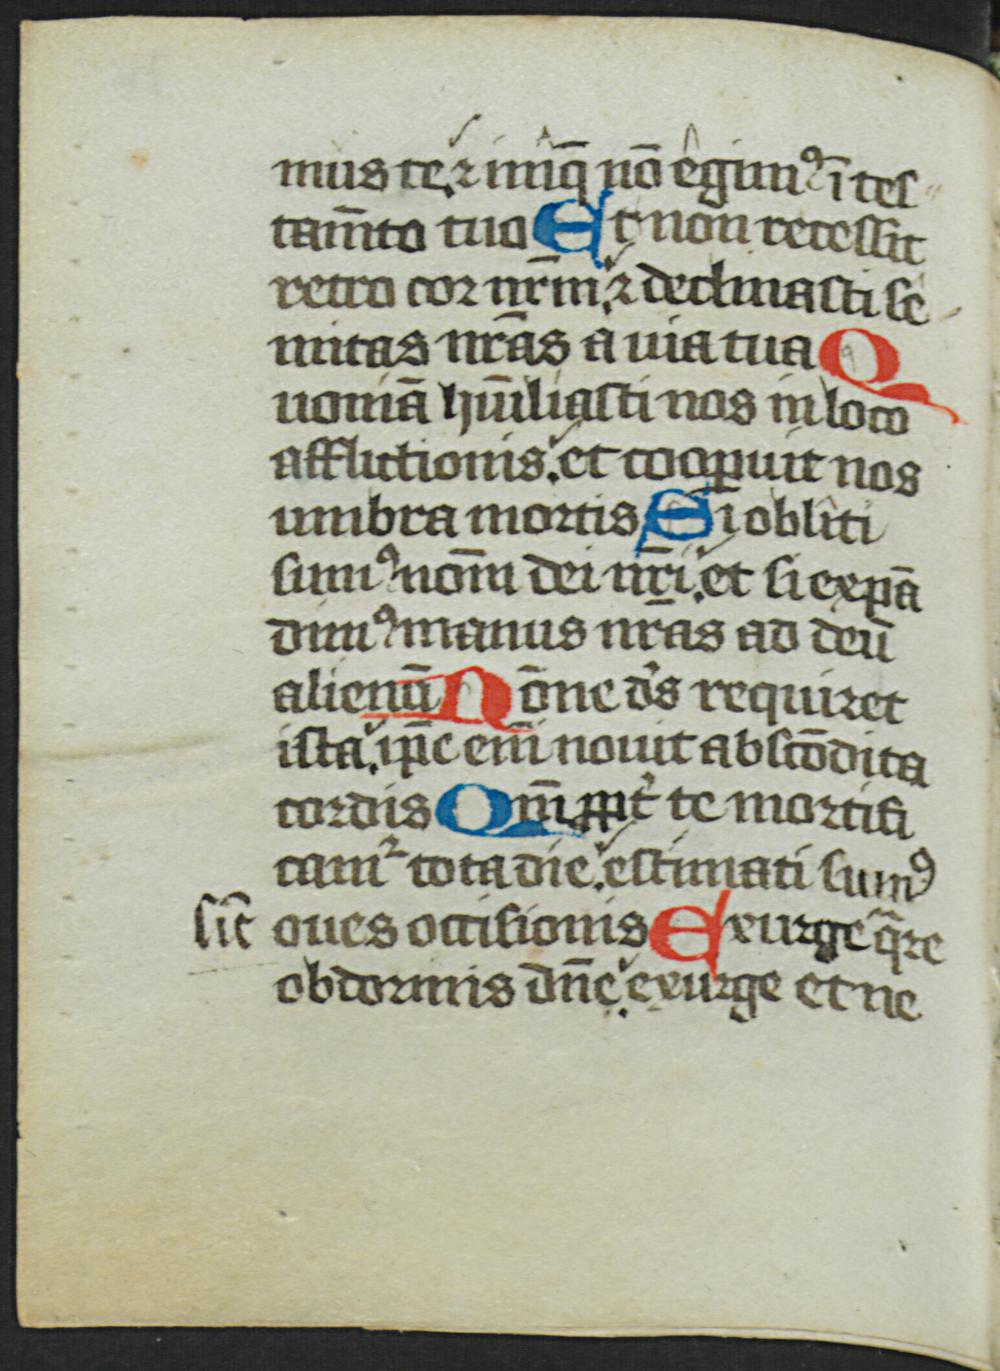 mus te, ⁊ iniq̄ nō egimꝰ ī tes
tam̄to tuo Et non recessit
retro cor nr̄m, ⁊ declinasti se
mitas nr̄as a uia tua Q
uoniā hūiliasti nos in loco
afflictionis. et cooꝑuit nos
umbra mortis Si obliti
sumꝰ nom̄ dei nr̄i. et si expā
dimꝰ manus nr̄as ad deū
alienū Nōne d's requiret
ista. ip̄e eni̅ nouit abscōdita
cordis Qm̄ ꝓpt' te mortifi
camᷣ tota die. estimati sumꝰ
sic̄ oues occisionis Exurge q̄re
obdormis dn̄e. exurge et ne